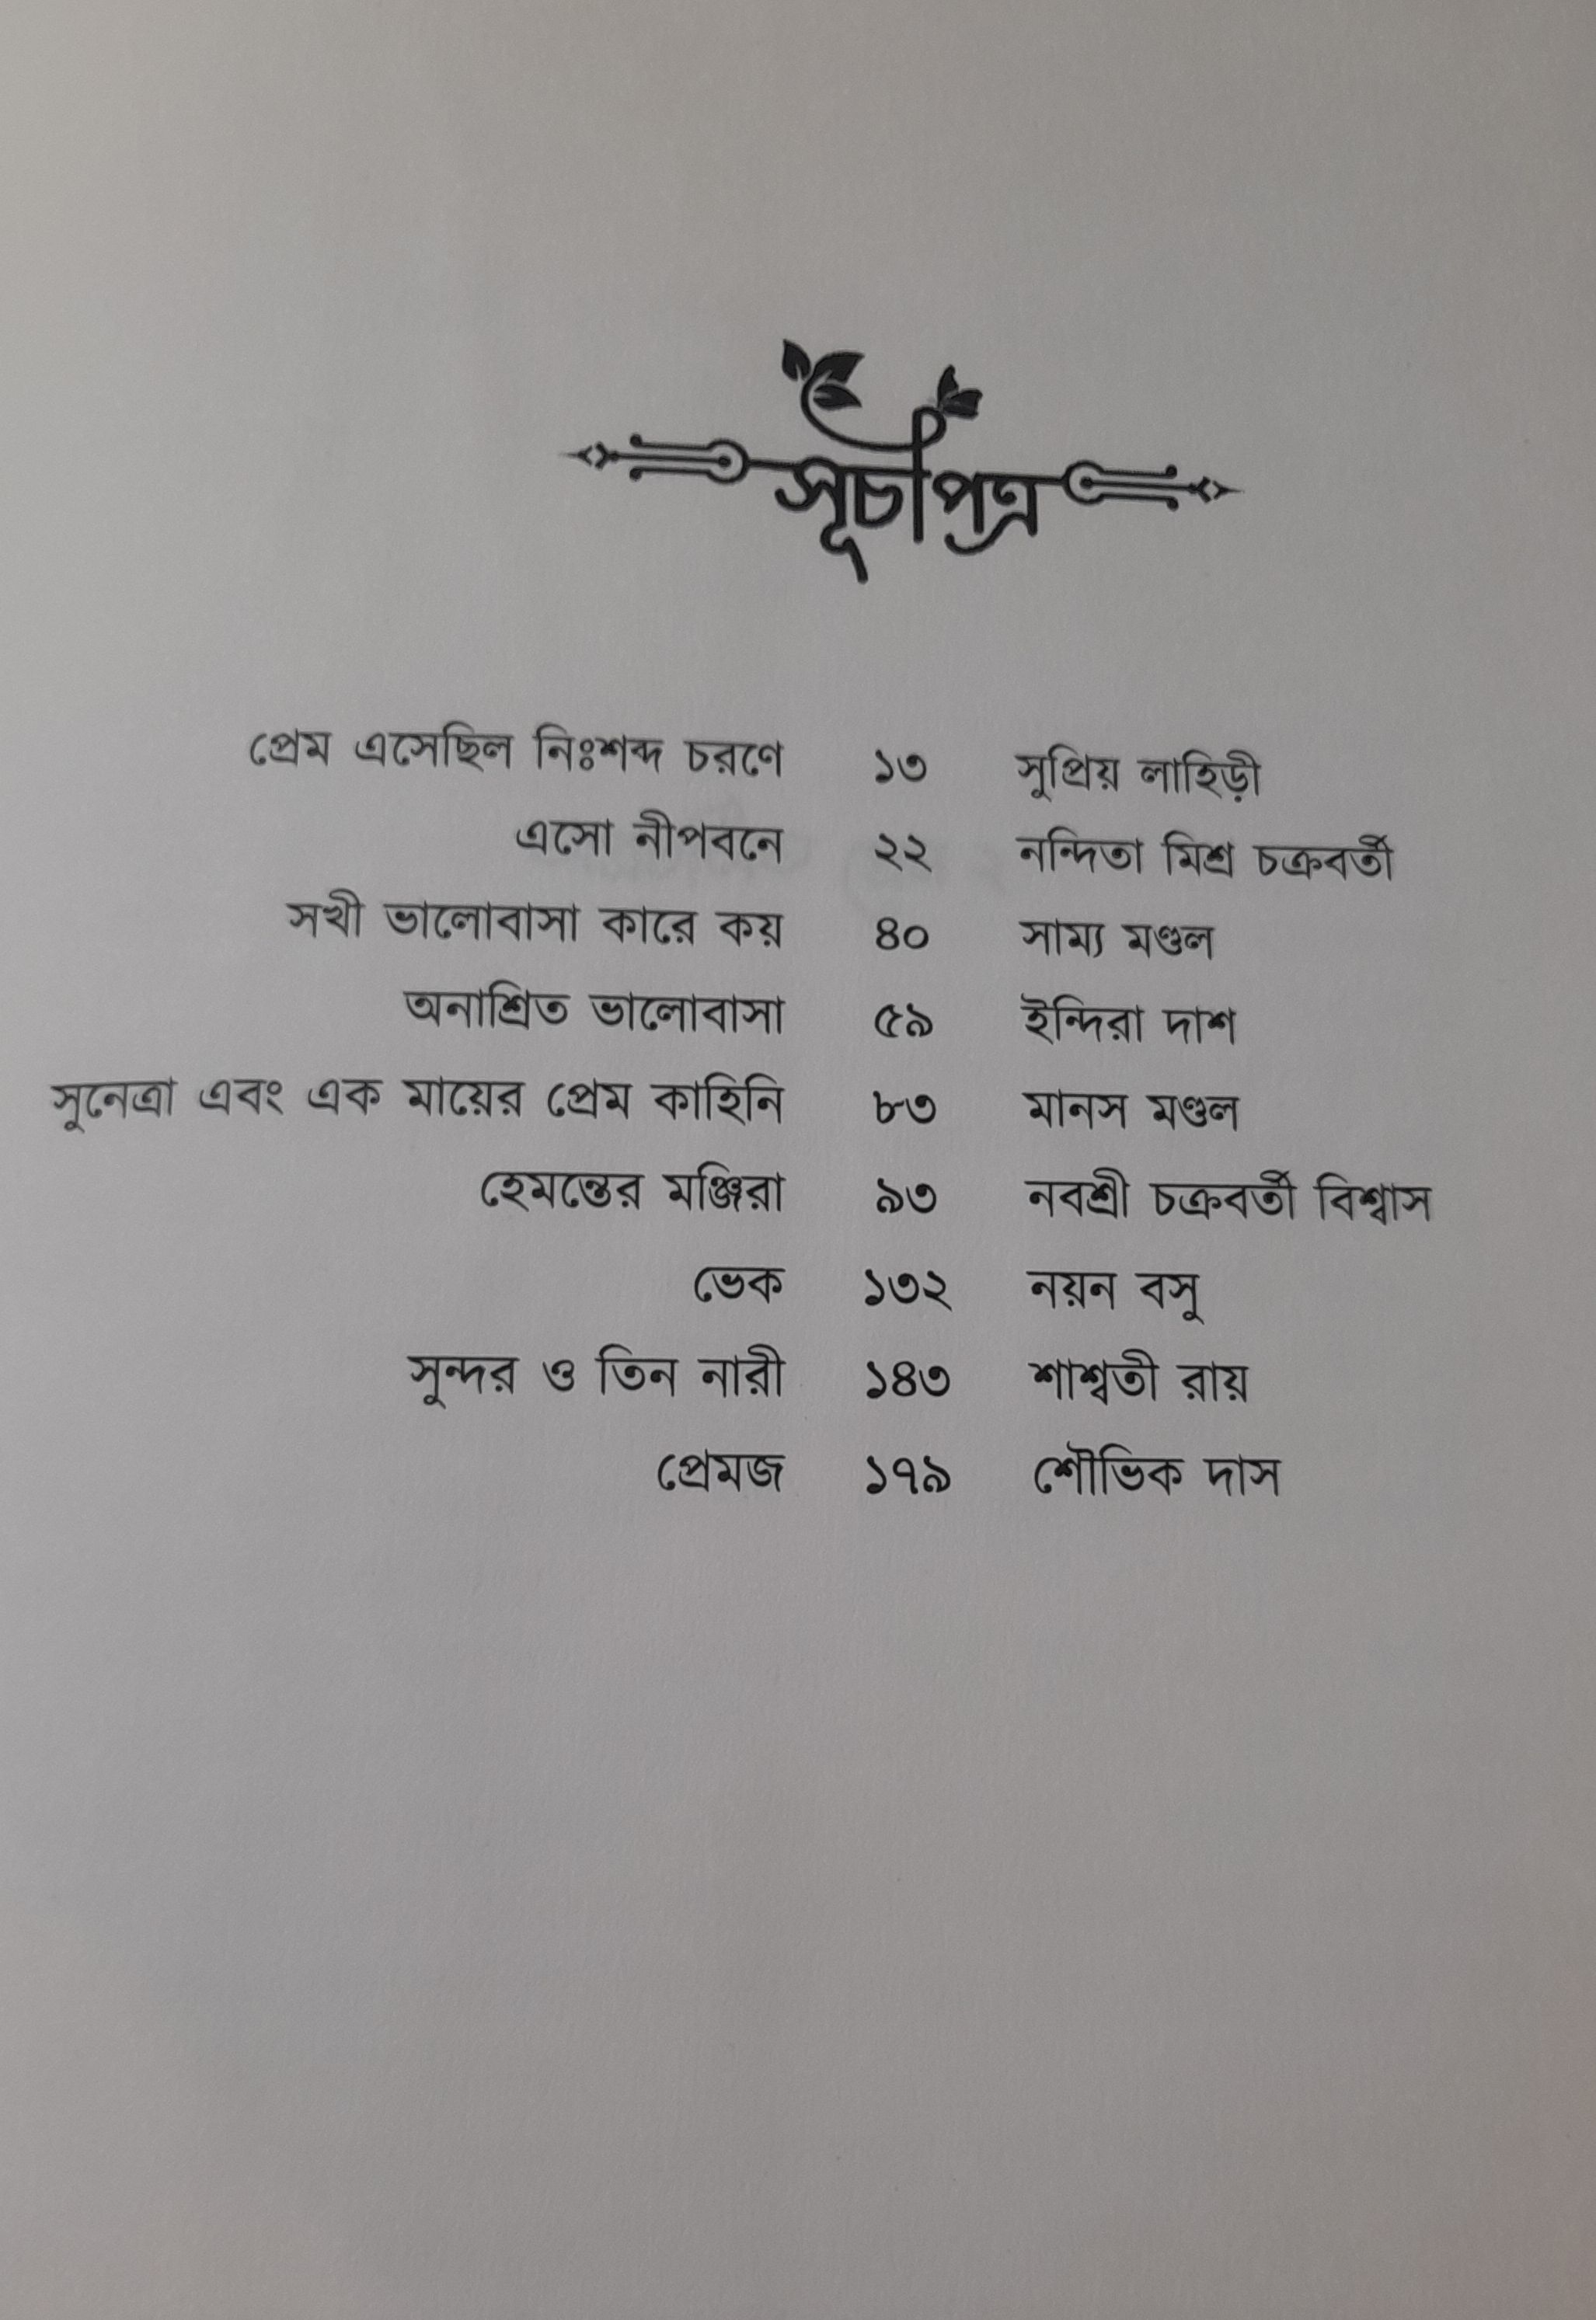 সূচীপত্র
প্রেম এসেছিল নিঃশব্দ চরণে ১৩ সুপ্রিয় লাহিড়ী
এসো নীপবনে ২২ নন্দিতা মিশ্র চক্রবর্তী
সখী ভালোবাসা কারে কয় ৪০ সাম্য মণ্ডল
অনাশ্রিত ভালোবাসা ৫৯ ইন্দিরা দাশ
সুনেত্রা এবং এক মায়ের প্রেম কাহিনি ৮৩ মানস মণ্ডল
হেমন্তের মঞ্জিরা ৯৩ নবশ্রী চক্রবর্তী বিশ্বাস
ভেক ১৩২ নয়ন বসু
সুন্দর ও তিন নারী ১৪৩ শাশ্বতী রায়
প্রেমজ ১৭৯ শৌভিক দাস